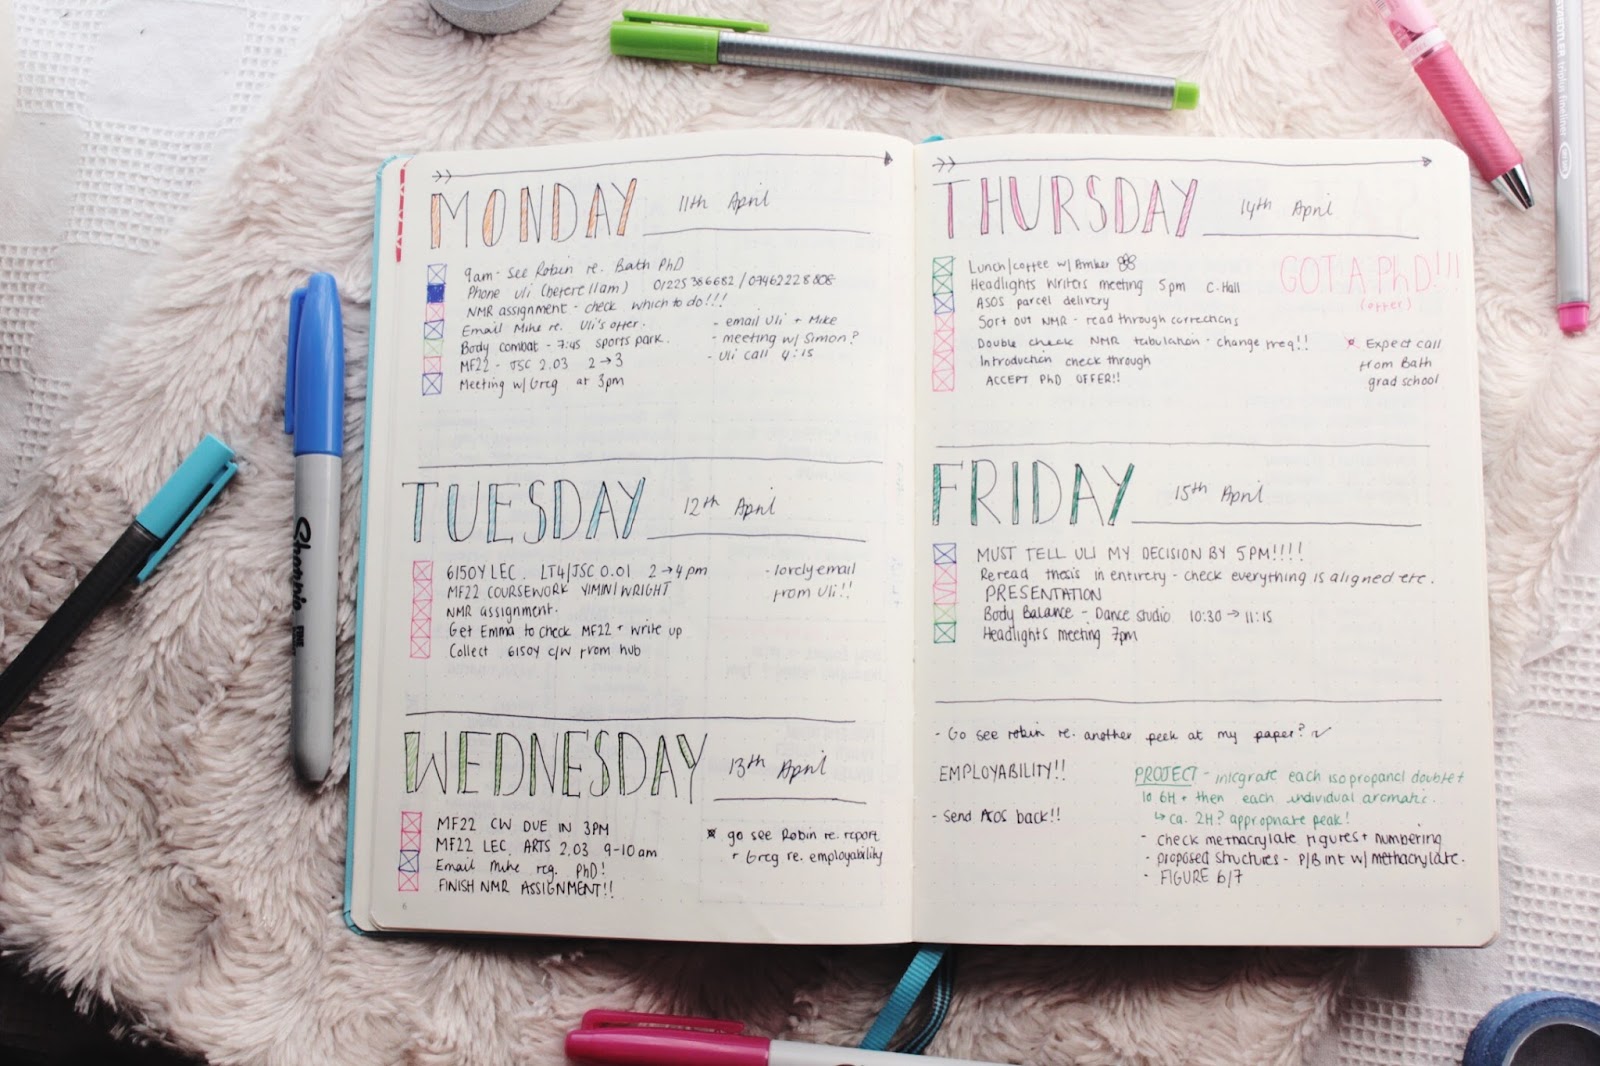 MONDAY 11th April
9am - see Robin re. Bath PhD
Phone Uli (before 11am) 01225386682 / 07462228808
NMR assignment - check which to do!!!
Email Mike re. Uli's offer.
Body combat - 7:45 sports park.
MF22 - JSC 2.03 2→3
Meeting w/ Greg at 3pm
- email Uli + Mike
- meeting w/ Simon?
- Uli call 4:15
TUESDAY 12th April
6150Y LEC. LT4/JSC 0.01 2→4pm
MF22 COURSEWORK YIMIN/WRIGHT
NMR assignment.
Get Emma to check MF22 + write up
Collect 6150Y c/w from hub
- lovely email
from Uli!!
WEDNESDAY 13th April
MF22 CW DUE IN 3PM
MF22 LEC. ARTS 2.03 9-10am
Email Mike reg. PhD!
FINISH NMR ASSIGNMENT!!
go see Robin re. report
+ Greg re. employability
6
THURSDAY 14th April
Lunch/coffee w/ Amber
Headlights writers meeting 5pm C-Hall
ASOS parcel delivery
Sort out NMR - read through corrections
Double check NMR tabulation - change freq!!
Introduction check through
ACCEPT PhD OFFER!!
GOT A PhD!!!
(offer)
Expect call
from Bath
grad school
FRIDAY 15th April
MUST TELL ULI MY DECISION BY 5PM!!!!
Reread thesis in entirety - check everything is aligned etc.
PRESENTATION
Body Balance - Dance studio 10:30 → 11:15
Headlights meeting 7pm
- Go see robin re. another peek at my paper? ✓
EMPLOYABILITY!!
- Send ASOS back!!
PROJECT - integrate each isopropanol doublet
to 6H + then each individual aromatic.
↳ ca. 2H? appropriate peak!
- check methacrylate figures + numbering
- proposed structures - P/B int w/ methacrylate.
- FIGURE 6/7
7
Sharpie
STAEDTLER triplus fineliner